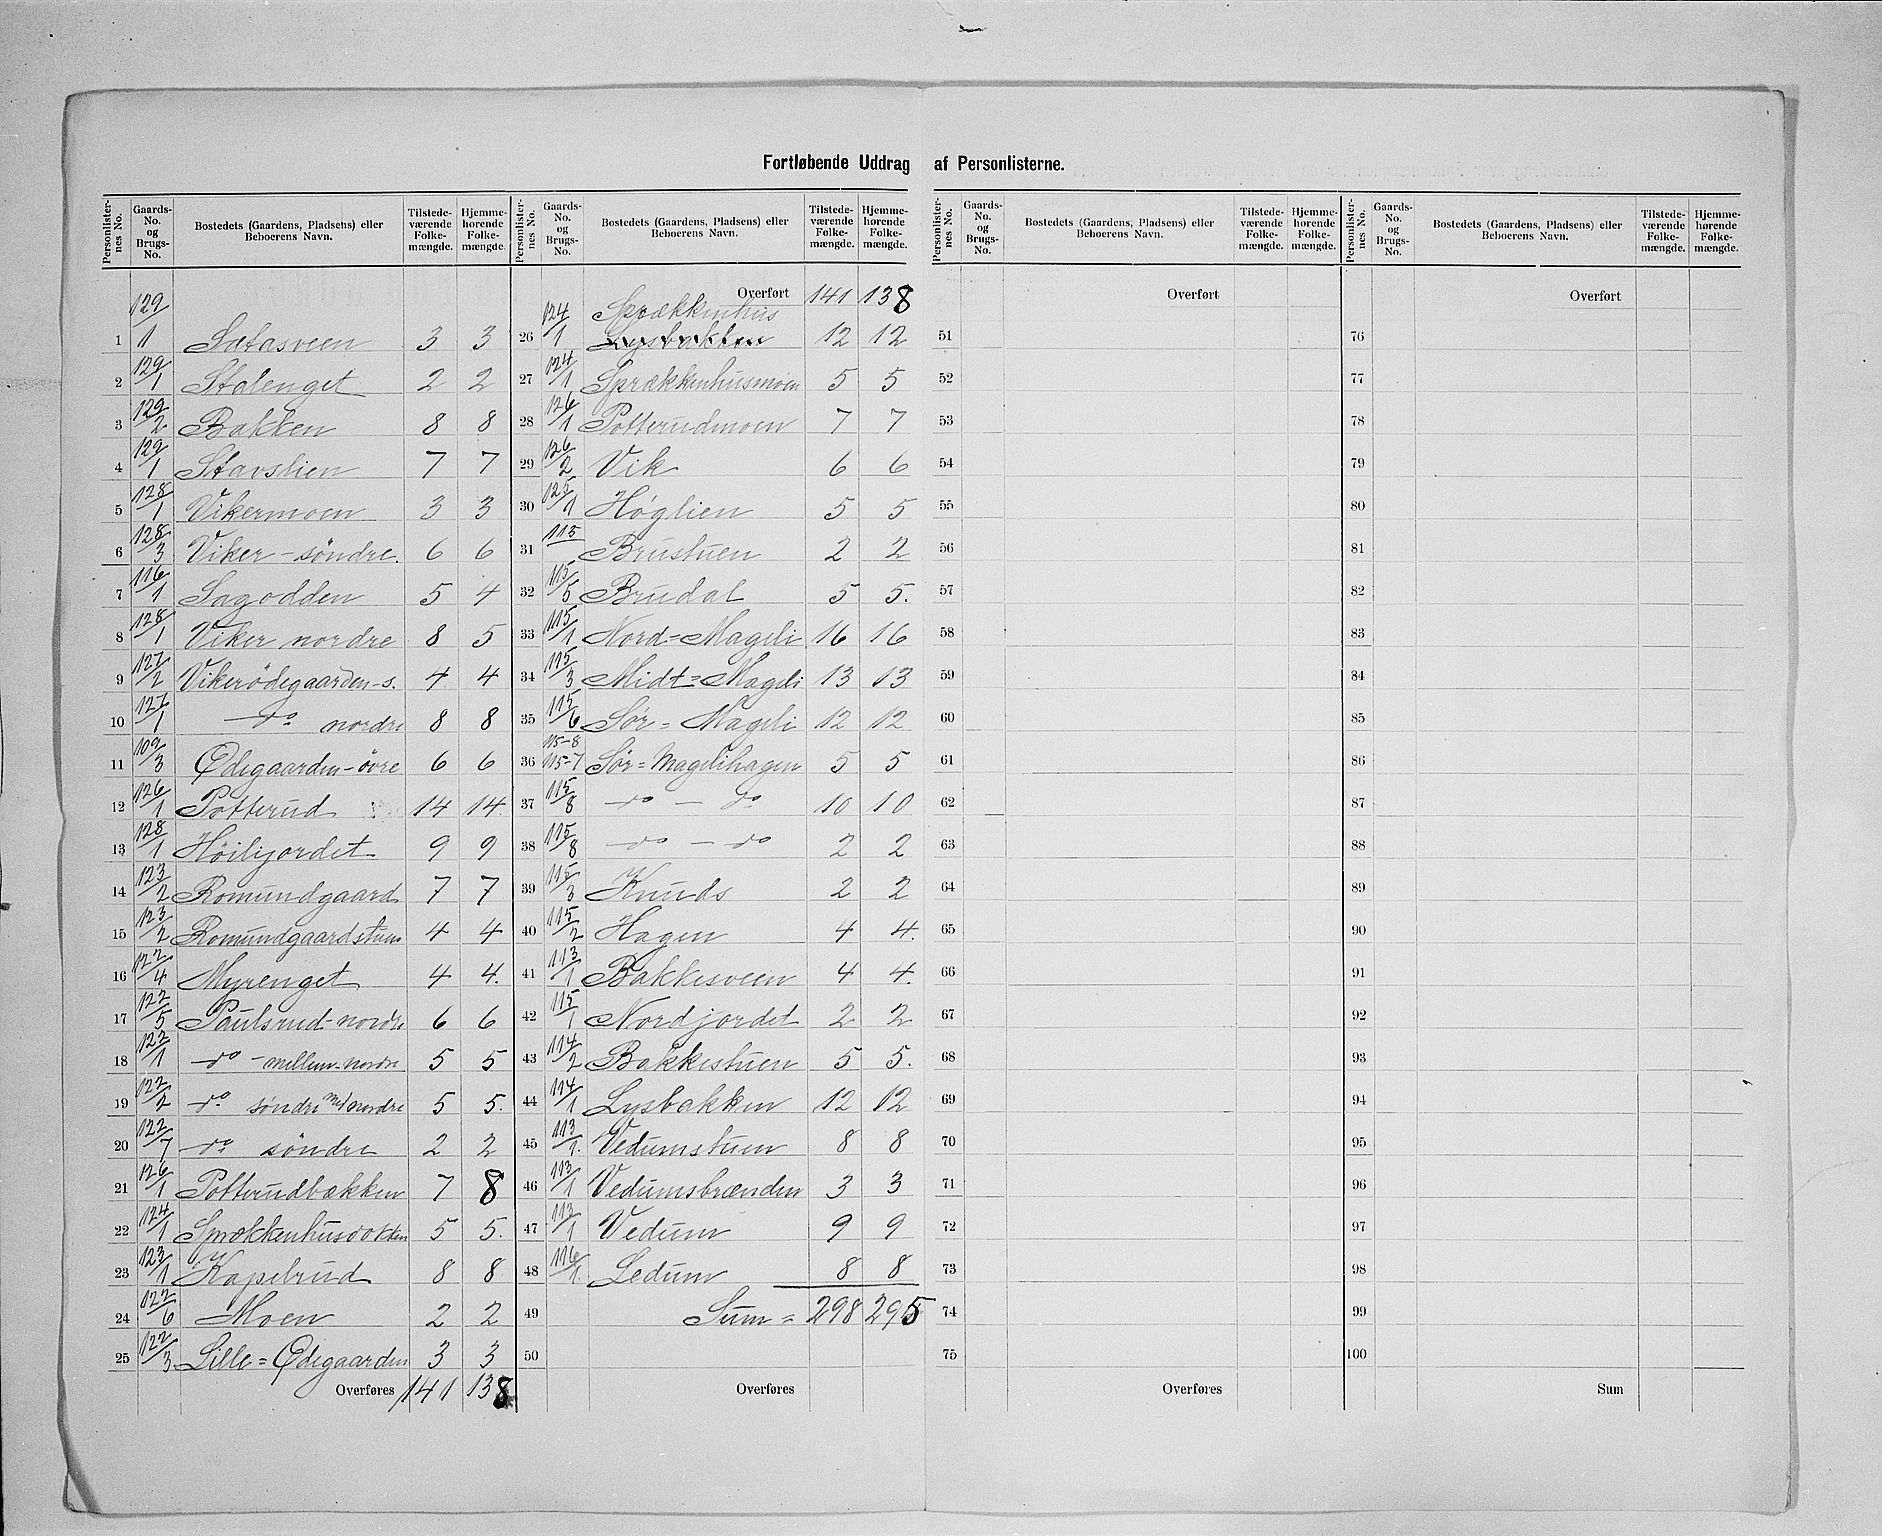 Fortløbende Uddrag af Personlisterne.
Personlisternes No. | Gaards-No. og Brugs-No. | Bostedets (Gaardens, Pladsens) eller Beboerens Navn. | Tilstedeværende Folkemængde. | Hjemmehørende Folkemængde.
1 129/1 Satasveen 3 3
2 129/1 Stalenget 2 2
3 129/2 Bakken 8 8
4 129/1 Stavslien 7 7
5 128/1 Vikermoen 3 3
6 128/3 Viker - søndre. 6 6
7 116/1 Sagodden 5 4
8 128/1 Viker nordre 8 5
9 127/2 Vikerødegaarden - s. 4 4
10 127/1 do nordre 8 8
11 109/3 Ødegaarden - øvre 6 6
12 126/1 Potterud 14 14.
13 128/1 Høilijordet 9 9
14 123/2 Romundgaard 7 7
15 123/2 Romundgaardstuen 4 4
16 122/4 Myrenget 4 4.
17 122/5 Paulsrud - nordre 6 6
18 122/1 do - mellem - nordre 5 5
19 122/2 do søndre med nordre 5 5.
20 122/7 do søndre 2 2
21 126/1 Potterudbakken 7 8
22 124/1 5 5.
23 123/1 Kapelrud 8 8
24 122/6 Moen 2 2
25 122/3. Lille = Ødegaarden 3 3
Overføres 141 138
Personlisternes No. | Gaards-No. og Brugs-No. | Bostedets (Gaardens, Pladsens) eller Beboerens Navn. | Tilstedeværende Folkemængde. | Hjemmehørende Folkemængde.
Overført 141 138
26 124/1 Sprækkenhus Lysbakken 12 12
27 124/1 Sprækkenhusmoen 5 5
28 126/1 Potterudmoen 7 7
29 126/2 Vik 6 6
30 125/1 Høglien 5 5
31 115 Brustuen 2 2
32 115/5 Brudal 5 5.
33 115/1 Nord = Mageli 16 16
34 115/3 Midt = Mageli 13 13
35 115/6 Sør = Mageli 12 12
36 115-8 115-7 Sør = Magelihagen 5 5
37 115/8 do - do 10 10
38 115/8 do - do 2 2
39 115/3 Knuds 2 2
40 115/2 Hagen 4 4.
41 113/1 Bakkesveen 4 4.
42 115/1 Nordjordet 2 2
43 114/2 Bakkestuen 5 5.
44 114/1 Lysbakken 12 12
45 113/1. Vedumstuen 8 8
46 113/1 Vedumsbrænden 3 3
47 113/1 Vedum 9 9
48 116/1. Ledum 8 8
49 Sum = 298 295
50
Overføres
Personlisternes No. | Gaards-No. og Brugs-No. | Bostedets (Gaardens, Pladsens) eller Beboerens Navn. | Tilstedeværende Folkemængde. | Hjemmehørende Folkemængde.
Overført
51
52
53
54
55
56
57
58
59
60
61
62
63
64
65
66
67
68
69
70
71
72
73
74
75
Overføres
Personlisternes No. | Gaards-No. og Brugs-No. | Bostedets (Gaardens, Pladsens) eller Beboerens Navn. | Tilstedeværende Folkemængde. | Hjemmehørende Folkemængde.
Overført
76
77
78
79
80
81
82
83
84
85
86
87
88
89
90
91
92
93
94
95
96
97
98
99
100
Sum